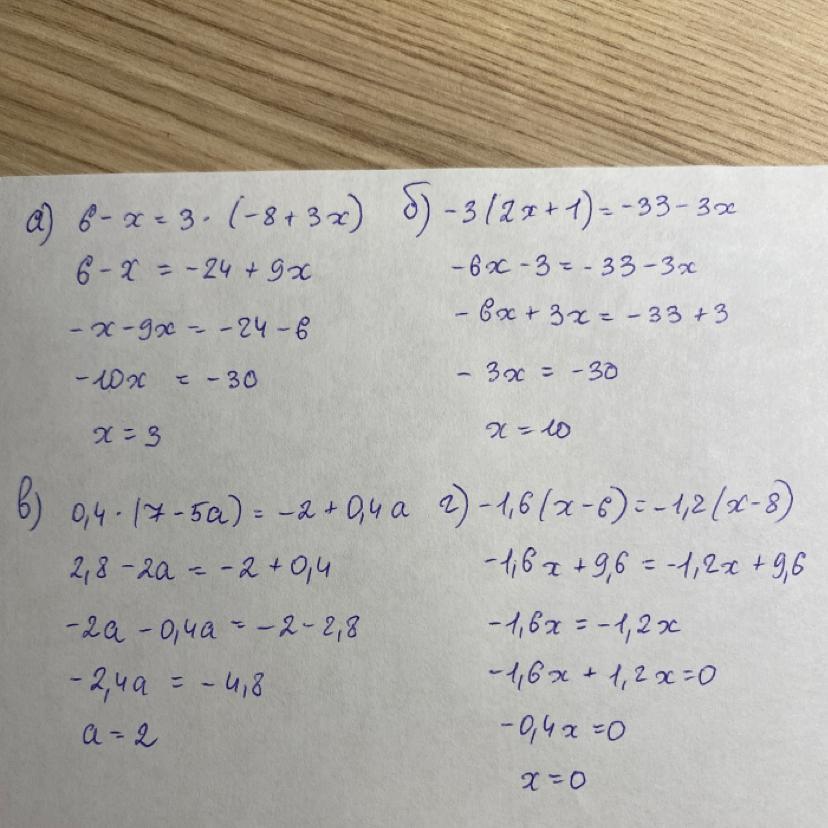 а) 6 - x = 3 · (-8 + 3x)
6 - x = -24 + 9x
-x - 9x = -24 - 6
-10x = -30
x = 3
б) -3(2x + 1) = -33 - 3x
-6x - 3 = -33 - 3x
-6x + 3x = -33 + 3
-3x = -30
x = 10
в) 0,4 · (7 - 5a) = -2 + 0,4a
2,8 - 2a = -2 + 0,4
-2a - 0,4a = -2 - 2,8
-2,4a = -4,8
a = 2
г) -1,6(x - 6) = -1,2(x - 8)
-1,6x + 9,6 = -1,2x + 9,6
-1,6x = -1,2x
-1,6x + 1,2x = 0
-0,4x = 0
x = 0